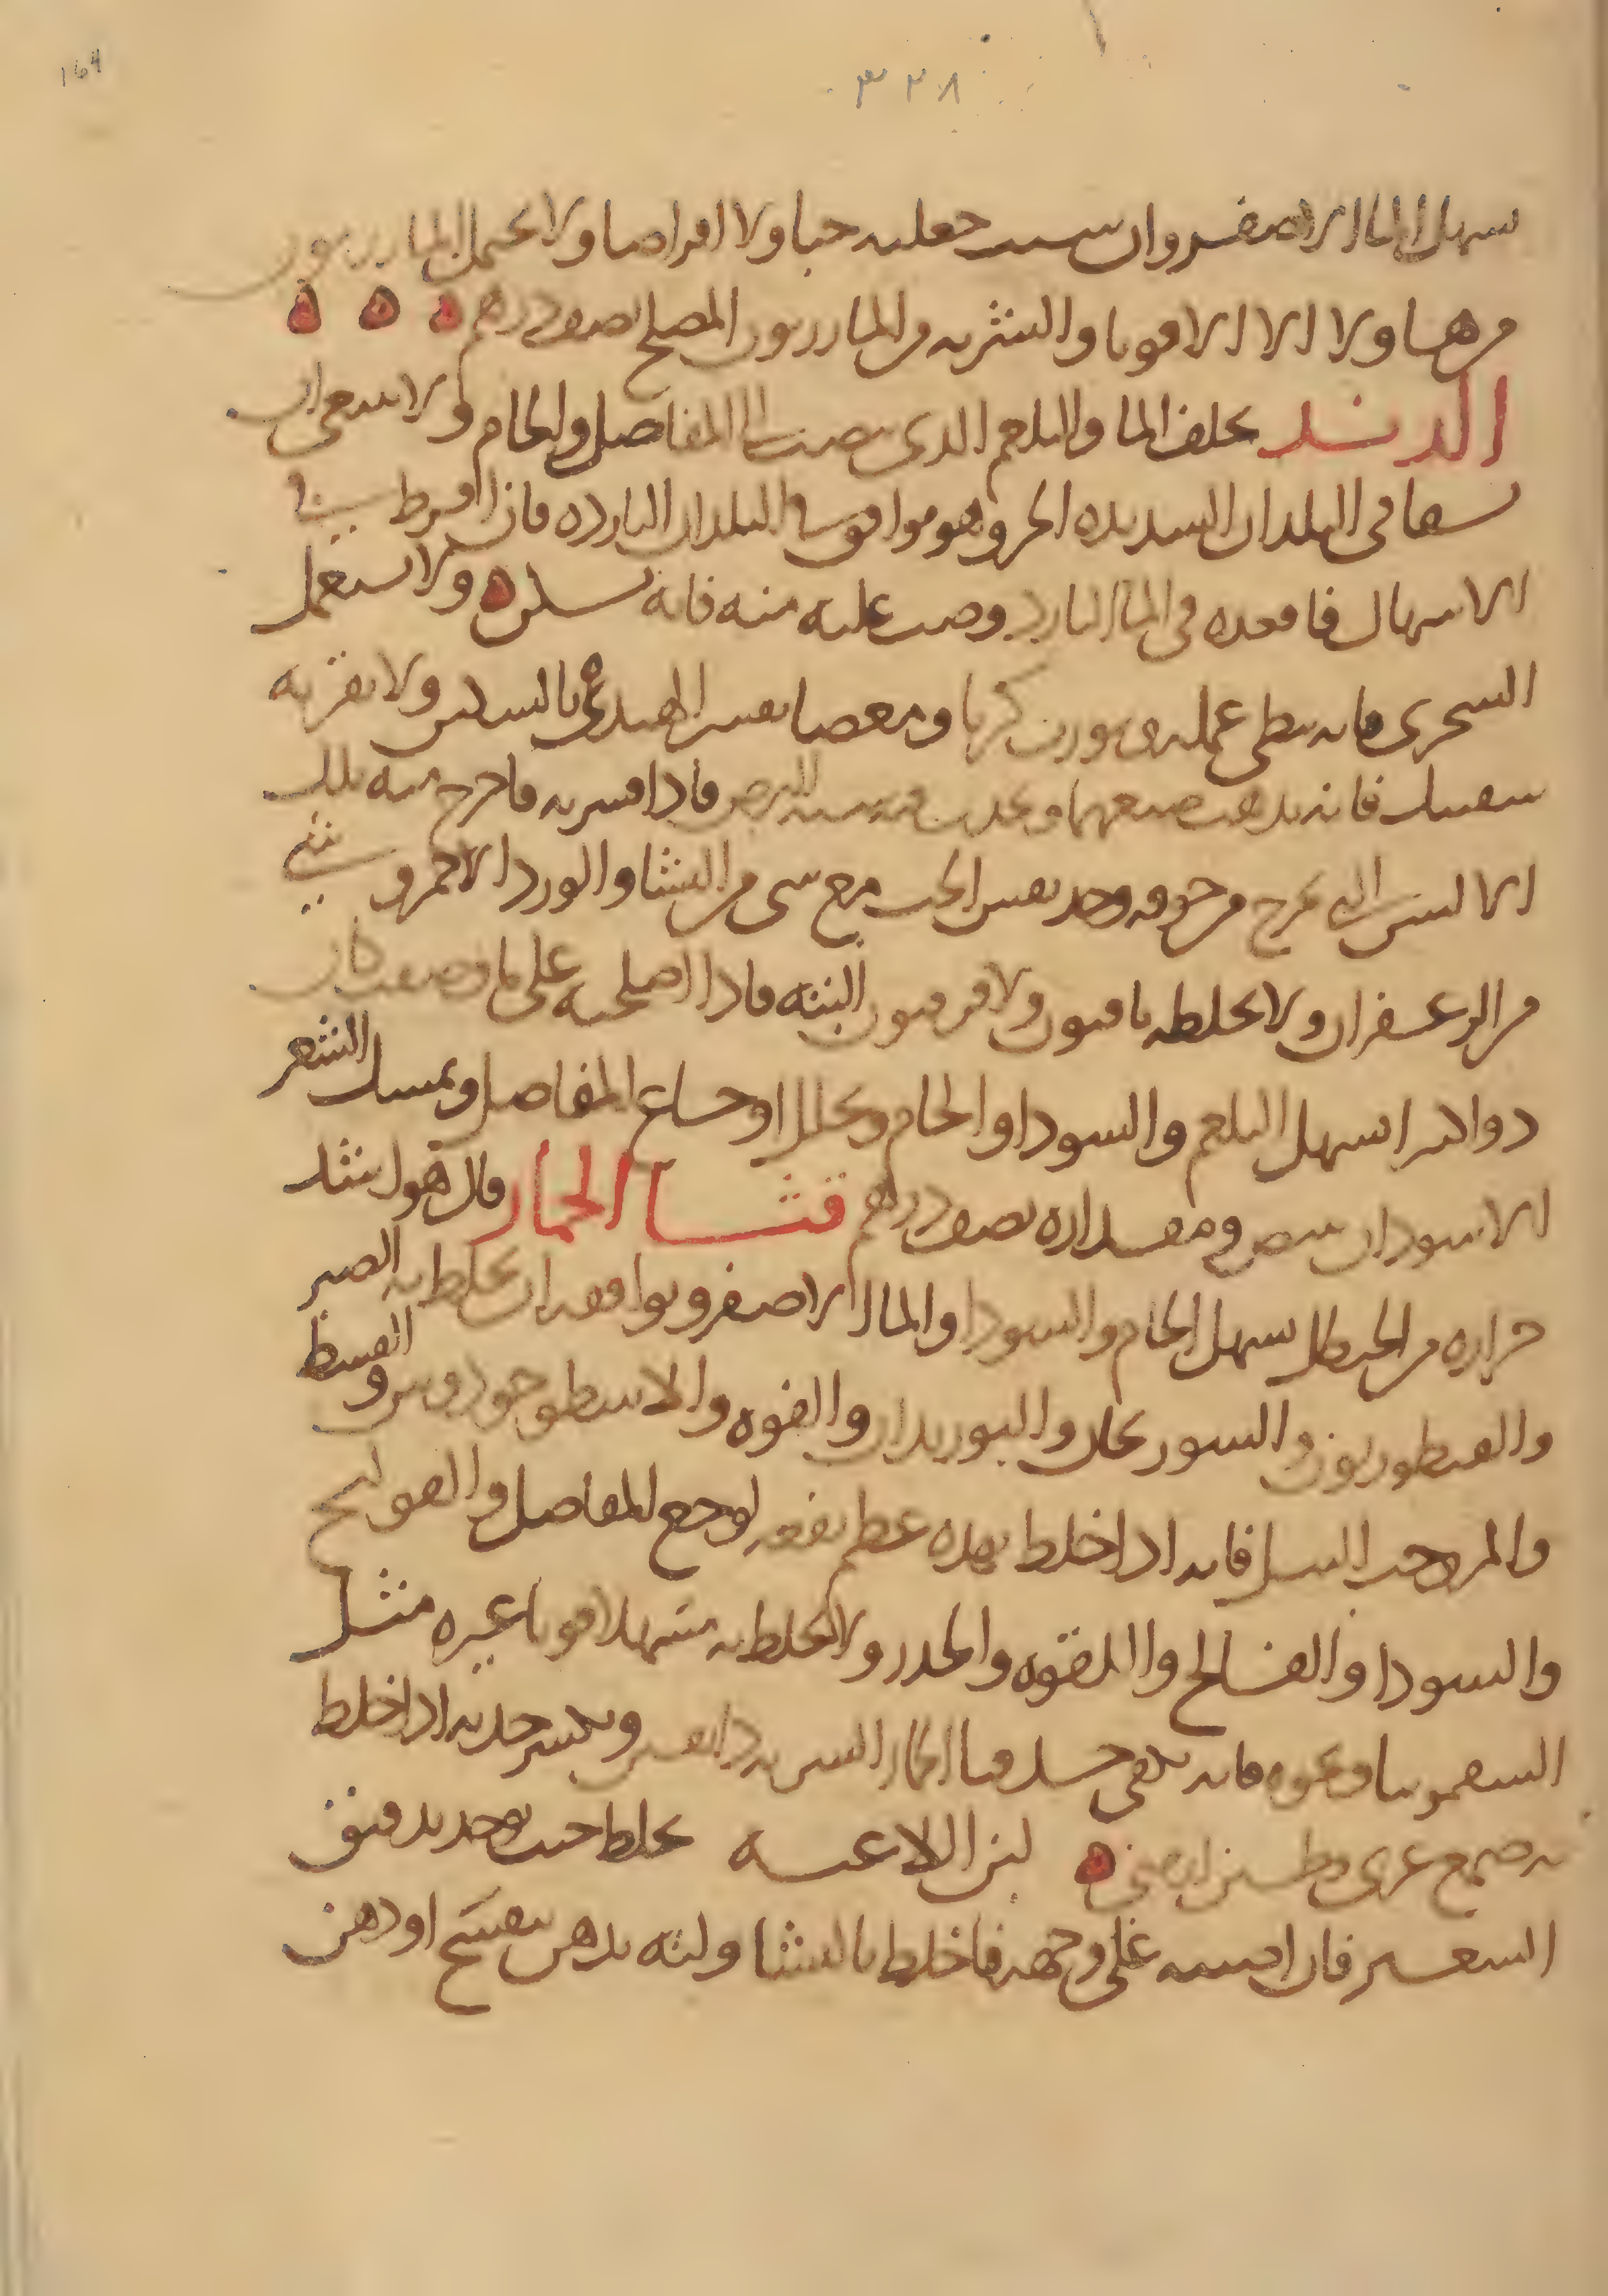 ٣٢٨
164
يسهل الماء الاصفر وان شيت جعلته حبا ولا اقراصا ولا يحتمل المازريون
مرهـا ولا الا الاقويا والشربه من المازريون المصلح نصف درهم ه ه ه
الدند يخلف الما والبلغم الذي ينصب الى المفاصل والخام ولا ينبغي ان
يسقا في البلدان الشديده الحر وهو موافق في البلدان البارده فان افرط شي
الاسهال فاقعده في الما البارد وصب عليه منه فانه يسكن ه ولا تستعمل
الشحري فانه يبطي عمله ويورث كربا ومغصا بقشر الهندي بالسكين ولا تقربه
شفتيك فانه يذهب صبغهما ويحدث فيه شبه البرص فاذا قشرته فاخرج منه تلك
الالسن التي تخرج من جوفه وخذ نفس الحب مع شي من النشا والورد الاحمر وشي
من الزعفران ولا تخلطه بافيون ولا فرفيون البته فاذا اصلحته على ما وصفت كان
دوا كبيرا يسهل البلغم والسودا والخام ويحلل اوجاع المفاصل ويمسك الشعر
الاسود ان يبيض ومقداره نصف درهم قثا الحمار قال هو اشد
حراره من الحنظل يسهل الخام والسودا والما الاصفر ويوافقه ان يخلط به الصبر
والقنطوريون والسورنجان والبوزيدان والفوه والاسطوخودوس والقسط
والمر وحب النيل فانه اذا خلط بهذه عظم نفعه لوجع المفاصل والقولنج
والسودا والفالج واللقوه والخدر ولا تخلط به مسهلا قويا غيره مثل
السقمونيا ونحوه فانه يكفي حسك قثا الحمار الشربه دانقين ويكسر حدته اذا خلط
به صمغ عربي وطين ارمني ه لبن اللاعيه يخلط حين يوخذ بدقيق
الشعير فان اقمته على وجهه فاخلط بالنشا ولته بدهن بنفسج او دهن